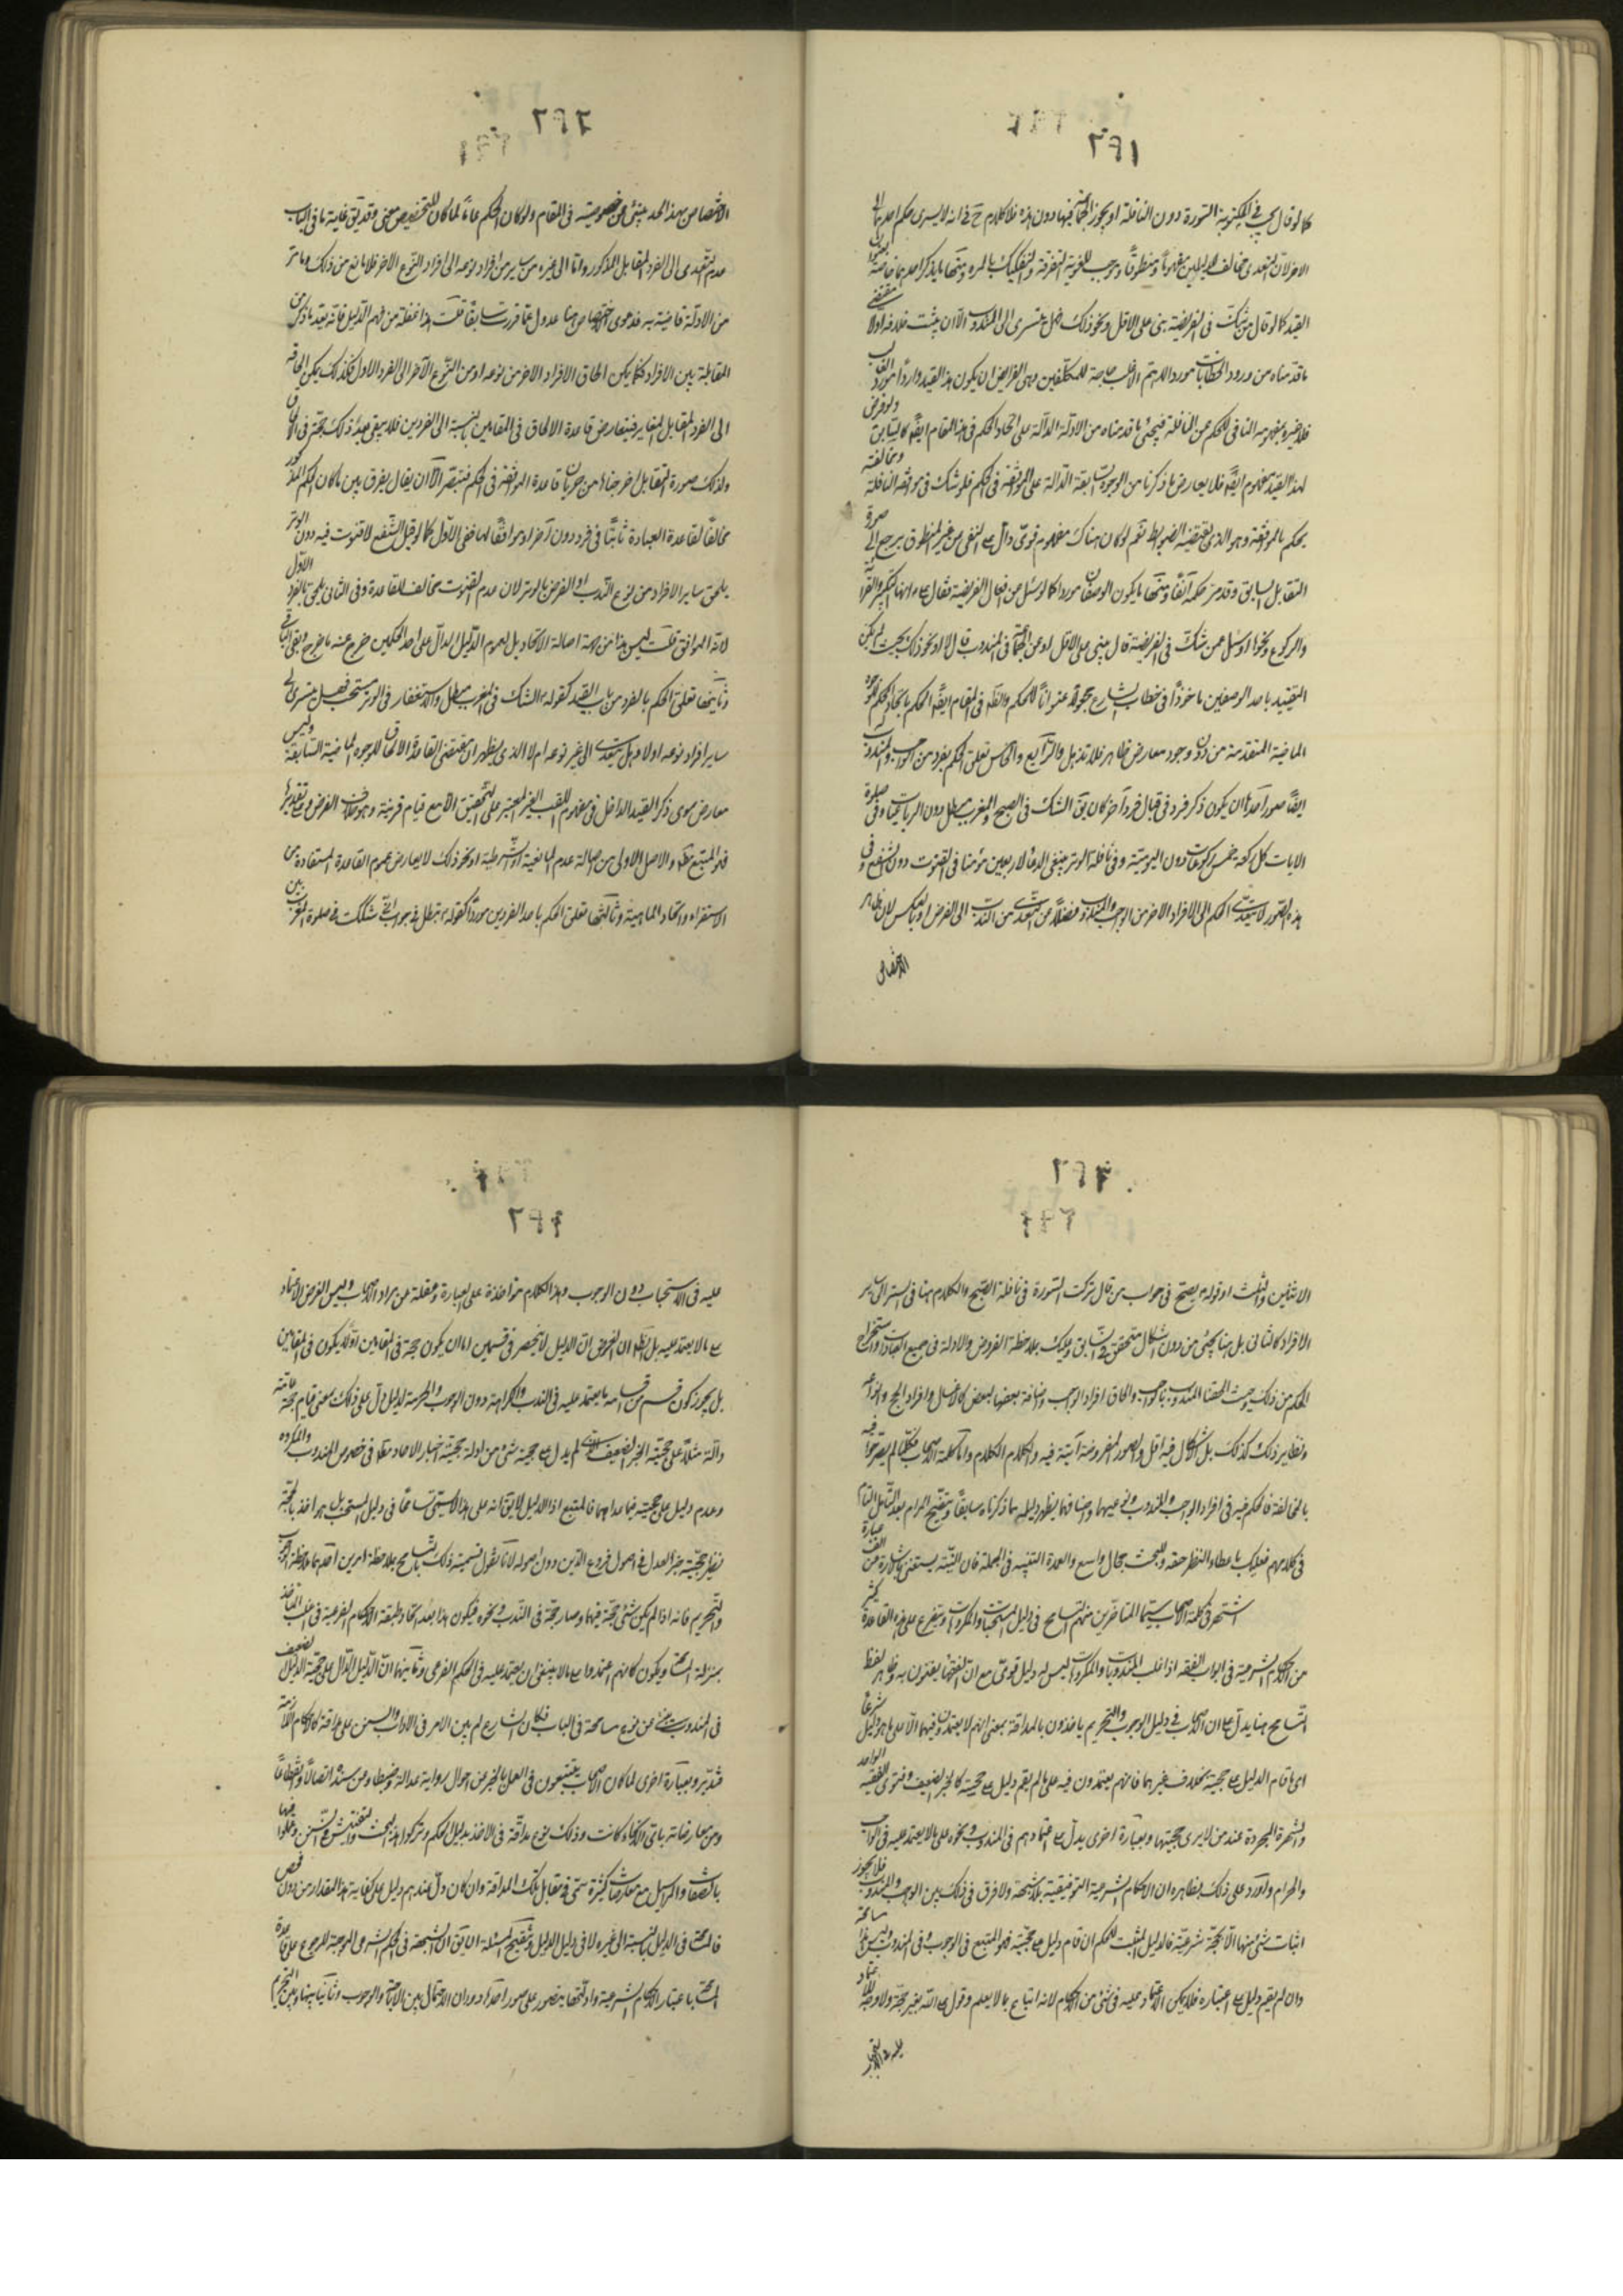 ٢٩١
كما لو قال يجب في المكتوبة السورة دون النافلة او يجوز فيها دون هذه فلا كلام ح في انه لا يسرى حكم احدهما الى
الاخر لان التعدى مخالف للدليلين مفهوماً ومنطوقاً وموجب للغوية التفرقة والتفكيك بالمره ومنها ما يذكر احدهما خاصة
القيد كما لو قال من شك في الفريضة بنى على الاقل ونحو ذلك فهل يتسرى الى المندوب الا ان يثبت خلافه اولا
ما قدمناه من ورود الخطابات مورد الاهم الاغلب حاجة للمكلفين وهى الفرايض ان يكون هذا القيد وارداً مورد الغالب
فلا عبرة بمفهومه النافى للحكم عن النافلة فيجئ ما قدمناه من الادلة الدالة على اتحاد الحكم في هذا المقام ايضا كالسابق ولو فرض
لهذا القيد مفهوم ايضا فلا يعارض ما ذكرنا من الوجوه السابقة الدالة على الموافقة في الحكم فلو شك في موافقة النافلة ومخالفته
يحكم بالموافقة وهو الذى يقتضيه الضوابط نعم لو كان هناك مفهوم قوى دال على النفى من غير المنطوق يرجع الى صورة
التقابل السابق وقد مر حكمه آنفاً ومنها ما يكون الوصفان مورداً كما لو سئل عن افعال الفريضة فقال انها التكبير والقراءة
والركوع ونحوها او سئل عمن شك في الفريضة قال يبنى على الاقل او عن الجماعة في المندوب قال لا او نحو ذلك بحيث لم يكن
التقييد باحد الوصفين ماخوذاً في خطاب الشارع مجعولاً عنواناً للحكم والظ في المقام ايضا الحكم باتحاد الحكم للوجوه
الماضية المتقدمة من دون وجود معارض ظاهر فلا تذهل والرابع والخامس تعلق الحكم بفرد من الواجب والمندوب
ايضا صور احدها ان يكون ذكر فرد في قبال فرد آخر كان يق الشك في الصبح والمغرب مبطل دون الرباعيات وفى صلوة
الايات كل ركعة خمس ركوعات دون اليومية وفى نافلة الوتر ينبغى الدعاء لاربعين مؤمنا في القنوت دون الشفع وفى
هذه الصور لا يتعدى الحكم الى الافراد الاخر من الواجب والمندوب فضلاً من التعدى من الندب الى الفرض او بالعكس لان ظاهر
الاختصاص
٢٩٢
الاختصاص بهذا الحد ينبئ عن خصوصيته في المقام ولو كان الحكم عاماً لما كان للتخصيص معنى وقد يق غاية ما في الباب
عدم التعدى الى الفرد المقابل المذكور واما الى غيره من ساير من افراد نوعه الى افراد النوع الاخر فلا مانع من ذلك وما مر
من الادلة قاضية به فدعوى اختصاص هنا عدول عما قررت سابقاً قلت هذا غفلة عن فهم الدليل فانه بعد ما ذكر من
المقابلة بين الافراد فكما يمكن الحاق الافراد الاخر من نوعه او من النوع الآخر الى الفرد الاول فكذلك يمكن الحاقه
الى الفرد المقابل المغاير فيتعارض قاعدة الالحاق في المقامين بالنسبة الى الفردين فلا يبقى بعد ذلك حجة في الالحاق
ولذلك صورة التقابل اخرجناها من جريان قاعدة الموافقة في الحكم فتبصر الا ان يقال بفرق بين ما كان الحكم المذكور
مخالفاً لقاعدة العبادة ثابتاً في فرد دون آخر او موافقاً لها ففى الاول كما لو قيل الشفع لا قنوت فيه دون الوتر
يلحق ساير الافراد من نوع الندب او الفرض بالوتر لان عدم القنوت مخالف للقاعدة وفى الثانى يلحق بالفرد الاول
لانه الموافق قلت ليس هذا من جهة اصالة الاتحاد بل لعموم الدليل الدال على احد الحكمين خرج عنه ما خرج وبقى الباقى
وثانيها تعلق الحكم بالفرد من باب القيد كقوله الشك في المغرب مبطل والاستغفار في الوتر مستحب فهل يتسرى الى
ساير افراد نوعه اولا وهل يتعدى الى غير نوعه ام لا الذى يظهر ان مقتضى القاعدة الالحاق للوجوه الماضية السابقة وليس
معارض سوى ذكر القيد الداخل في مفهوم اللقب الغير المعتبر على التحقيق الا مع قيام قرينة وهو خلاف الفرض ومع تقديرها
فهو المتبع ظ والاصل الاولى من اصالة عدم المانعية او الشرطية او نحو ذلك لا يعارض عموم القاعدة المستفادة من
الاستقراء واتحاد الماهية وثالثها تعلق الحكم باحد الفردين مورداً كقوله تبطل في جواب انى شككت في صلوة المغرب بين
٢٩٣
الاثنين والثلث او قوله يصح في جواب من قال تركت السورة في نافلة الصبح والكلام هنا في السراية الى ساير
الافراد كالثانى بل هنا يجئ من دون اشكال متحقق في السابق وعليك بملاحظة الفروض والادلة في جميع العبادات واستخراج
الحكم من ذلك من حيث الحق المندوب بالواجب والحاق افراد الواجب واضافة بعضها لبعض كالاغسال وافراد الحج وانواعه
ونظاير ذلك كذلك بل الاشكال فيه اقل والصور المفروضة آتية فيه والكلام الكلام واما كلمة الاصحاب فكلما لم يصرحوا فيه
بالمخالفة فالحكم فيه في افراد الواجب والمندوب ونوعيهما واصنافهما يظهر دليله مما ذكرناه سابقاً وينقح المرام بعد التأمل التام
في كلامهم فعليك باعطاء النظر حقه وللبحث مجال واسع والعمدة التنبيه في الجملة فان النبيه يستغنى بالاشارة من الف عبارة
اشتهر في كلمة الاصحاب سيما المتاخرين منهم التسامح في دليل المستحبات والمكروهات ويتفرع على هذه القاعدة كثير
من الاحكام الشرعية في ابواب الفقه اذ اغلب المندوبات والمكروهات ليس له دليل قوى مع ان الفقهاء يفتون به وظاهر لفظ
التسامح هنا يدل على ان الاصحاب في دليل الوجوب والتحريم ياخذون بالمداقة بمعنى انهم لا يعتمدون فيهما الا على ما هو دليل شرعاً
اى ما قام الدليل على حجيته بخلاف غيرهما فانهم يعتمدون فيه على ما لم يقم دليل على حجيته كالخبر الضعيف وفتوى الفقيه الواحد
والشهرة المجردة عند من لا يرى حجيتها وبعبارة اخرى يدل على اعتمادهم في المندوب ونحوه على ما لا يعتمد عليه في الواجب
والحرام واورد على ذلك بظاهره ان الاحكام الشرعية التوقيفية بلا شبهة ولا فرق في ذلك بين الواجب والمندوب فلا يجوز
اثبات شئ منها الا بحجة شرعية فالدليل المثبت للحكم ان قام دليل على حجيته فهو المتبع في الوجوب وفى المندوب وليس هذا مسامحة
وان لم يقم دليل على اعتباره فلا يمكن الاعتماد عليه في شئ من الاحكام لانه اتباع بما لا يعلم وقول على الله بغير حجة ولا وجه للاعتماد
عليه في الاستحباب
٢٩٤
عليه في الاستحباب دون الوجوب وهذا الكلام مؤاخذة على العبارة وغفلة عن مراد الاصحاب وليس الغرض الاعتماد
على ما لا يعتمد عليه بل الظ ان الغرض ان الدليل لا ينحصر في قسمين اما ان يكون حجة في المقامين او لا يكون في المقامين
بل يجوز كون قسم من اقسامه ما يعتمد عليه في الندب والكراهة دون الوجوب والحرمة لدليل دل على ذلك بمعنى قيام حجة عامة
دالة مثلاً على حجية الخبر الضعيف الذى لم يدل على حجيته شئ من ادلة حجية اخبار الاحاد مط في خصوص المندوب والمكروه
وعدم دليل على حجيته فيما عداهما فالمتبع اذاً الدليل لا يق انه على هذا لا يستحق تسامحاً في دليل المستحب بل هو اخذ بالحجة
نظير حجية خبر العدل في اصول فروع الدين دون اصوله لانا نقول تسمية ذلك بالتسامح بملاحظة امرين احدهما ملاحظة الوجوب
والتحريم فانه اذا لم يكن شئ حجة فيهما وصار حجة في الندب ونحوه فيكون هذا بعد اتحاد طبقة الاحكام الفرعية في اغلب الماخذ
بمنزلة المسامحة ويكون كانهم اعتمدوا على ما لا ينبغى ان يعتمد عليه في الحكم الفرعى وثانيهما ان الدليل الدال على حجية الدليل الضعيف
في المندوب منبئ عن نوع مسامحة في الباب فكان الشارع لم يبن الامر في الاداب والسنن على مداقة كالاحكام اللازمة
فتدبر وبعبارة اخرى لما كان الاصحاب يتتبعون في العمل بالخبر عن احوال رواية عدالة وضبطاً ومن سنده اتصالاً وانقطاعاً
ومن معارضاته باى انحاء كانت وذلك نوع مداقة في الاخذ بدليل الحكم وتركوا هذا البحث والتفتيش في السنن وعملوا فيها
بالضعفاء والمراسيل مع معارضات كثيرة سمى في مقابل تلك المداقة وان كان دل عندهم دليل على كفاية هذا المقدار من دون فحص
فالمسامحة في الدليل بالنسبة الى غيره لا في دليل الدليل وتنقيح المسئلة ان يق ان الشبهة في الحكم الشرعى الموجبة للرجوع على قاعدة
المسامحة باعتبار الاحكام الشرعية وادلتها يتصور على صور احدها دوران الاحتمال بين الاباحة والوجوب وثانيها بينها وبين التحريم